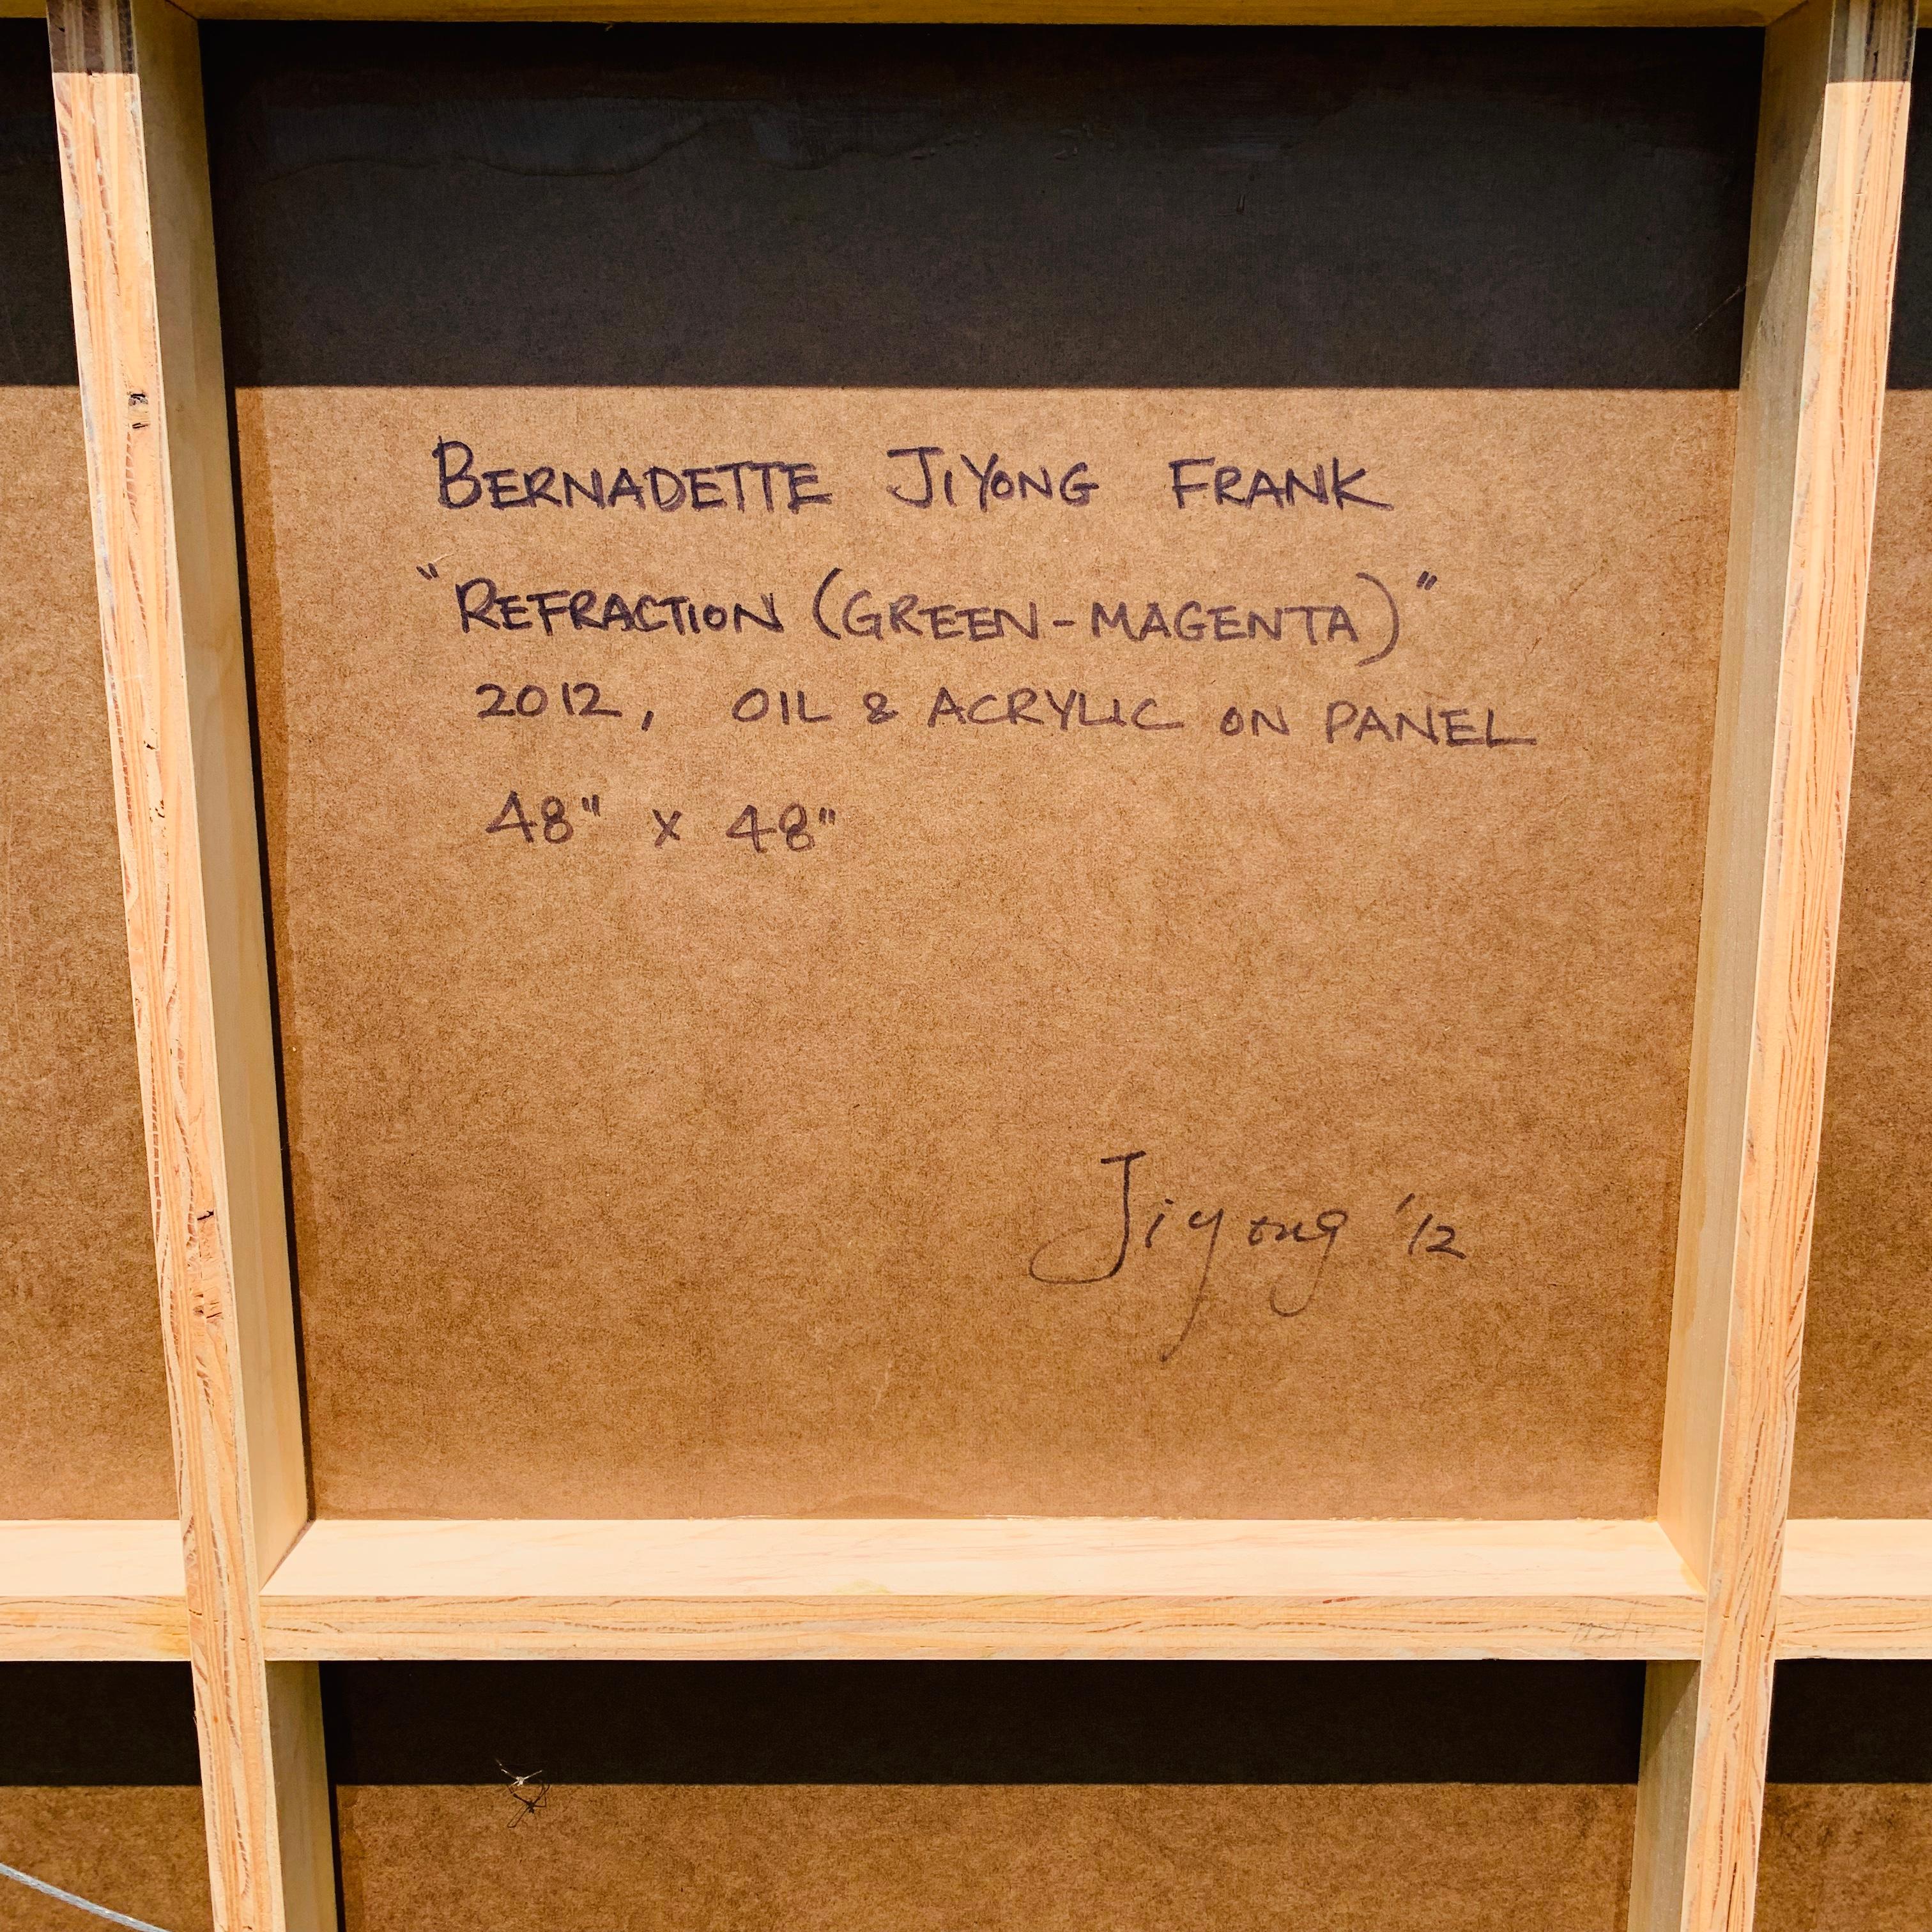 BERNADETTE JIYONG FRANK
"REFRACTION (GREEN-MAGENTA)"
2012, OIL & ACRYLIC ON PANEL
48" x 48"
Jiyong '12